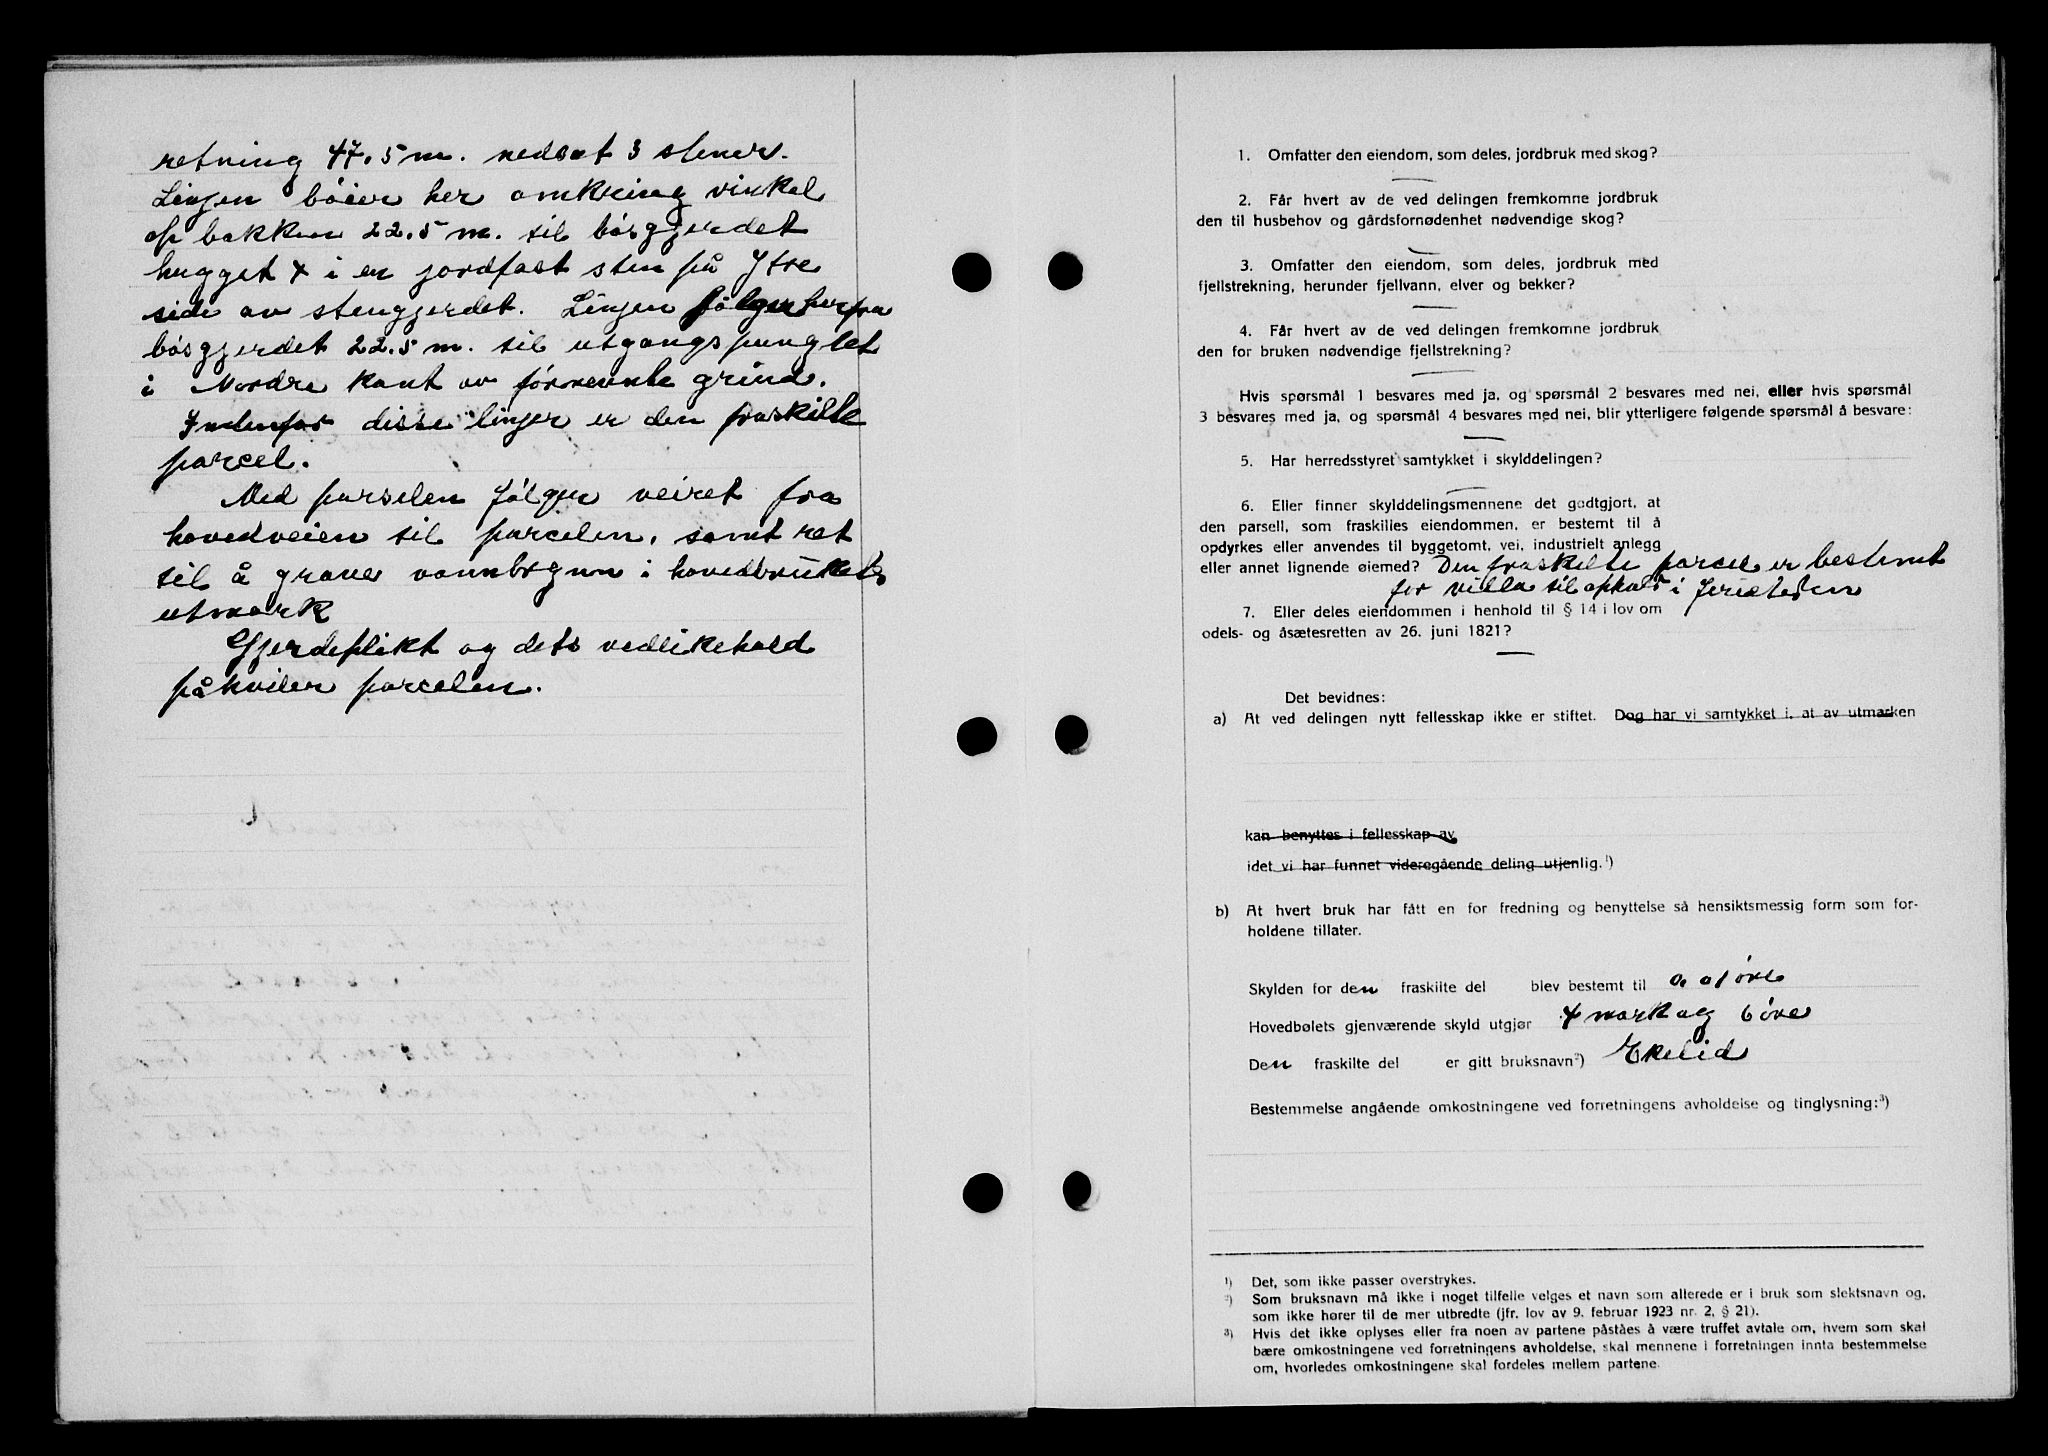 retning 47.5 m. nedsat 3 stener.
Linjen bøier her omkring vinkel
op bakken 22.5 m. til bøsgjerdet
hugget + i en jordfast sten på Ytre
side av stengjerdet. Linjen følger herfra
bøsgjerdet 22.5 m. til utgangspungtet
i Nordre kant av førnevnte grind.
Indenfor disse linjer er den fraskilte
parcel.
Med parselen følger veiret fra
hovedveien til parcelen, samt ret
til å grave vannbrønn i hovedbrukets
utmark
Gjerdeplikt og dets vedlikehold
påhviler parcelen.
1. Omfatter den eiendom, som deles, jordbruk med skog?
—
2. Får hvert av de ved delingen fremkomne jordbruk
den til husbehov og gårdsfornødenhet nødvendige skog?
—
3. Omfatter den eiendom, som deles, jordbruk med
fjellstrekning, herunder fjellvann, elver og bekker?
—
4. Får hvert av de ved delingen fremkomne jordbruk
den for bruken nødvendige fjellstrekning?
—
Hvis spørsmål 1 besvares med ja, og spørsmål 2 besvares med nei, eller hvis spørsmål
3 besvares med ja, og spørsmål 4 besvares med nei, blir ytterligere følgende spørsmål å besvare:
—
5. Har herredsstyret samtykket i skylddelingen?
—
6. Eller finner skylddelingsmennene det godtgjort, at
den parsell, som fraskilles eiendommen, er bestemt til å
opdyrkes eller anvendes til byggetomt, vei, industrielt anlegg
eller annet lignende øiemed? Den fraskilte parcel er bestemt
for villa til ophold i
7. Eller deles eiendommen i henhold til § 14 i lov om
odels- og åsætesretten av 26. juni 1821?
—
Det bevidnes:
a) At ved delingen nytt fellesskap ikke er stiftet. Dog har vi samtykket i, at av utmarken
kan benyttes i fellesskap av
idet vi har funnet videregående deling utjenlig.¹)
b) At hvert bruk har fått en for fredning og benyttelse så hensiktsmessig form som for-
holdene tillater.
Skylden for den fraskilte del blev bestemt til 0.01 øre
Hovedbølets gjenværende skyld utgjør 4 mark og 6 øre
Den fraskilte del er gitt bruksnavn²) Ekelid
Bestemmelse angående omkostningene ved forretningens avholdelse og tinglysning:³)
¹) Det, som ikke passer overstrykes.
²) Som bruksnavn må ikke i noget tilfelle velges et navn som allerede er i bruk som slektsnavn og,
som ikke hører til de mer utbredte (jfr. lov av 9. februar 1923 nr. 2, § 21).
³) Hvis det ikke oplyses eller fra noen av partene påståes å være truffet avtale om, hvem som skal
bære omkostningene ved forretningens avholdelse, skal mennene i forretningen innta bestemmelse
om, hvorledes omkostningene skal fordeles mellem partene.